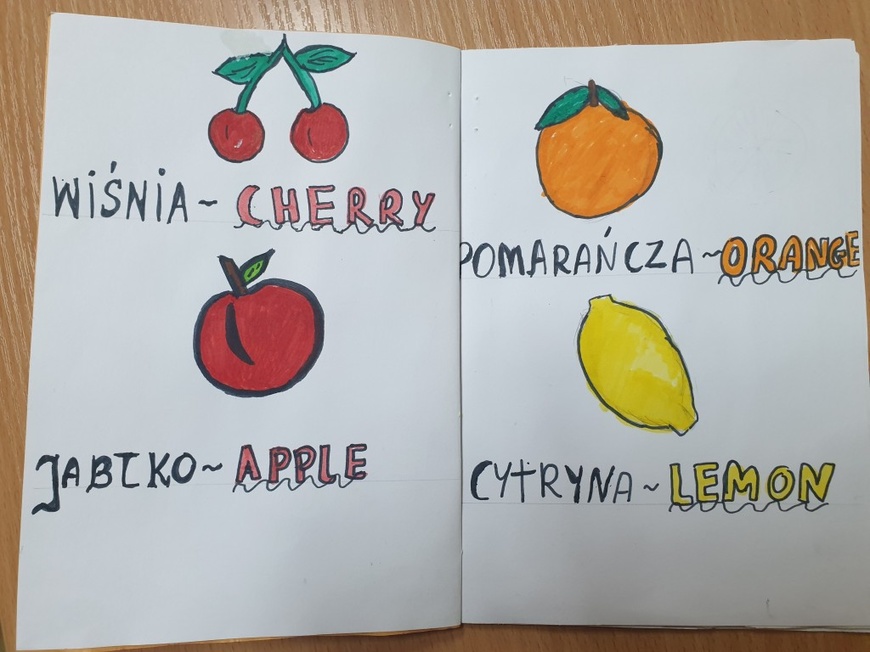 WiŚNiA ~ CHERRY
JABŁKO ~ APPLE
POMARAŃCZA ~ ORANGE
CYTRYNA ~ LEMON